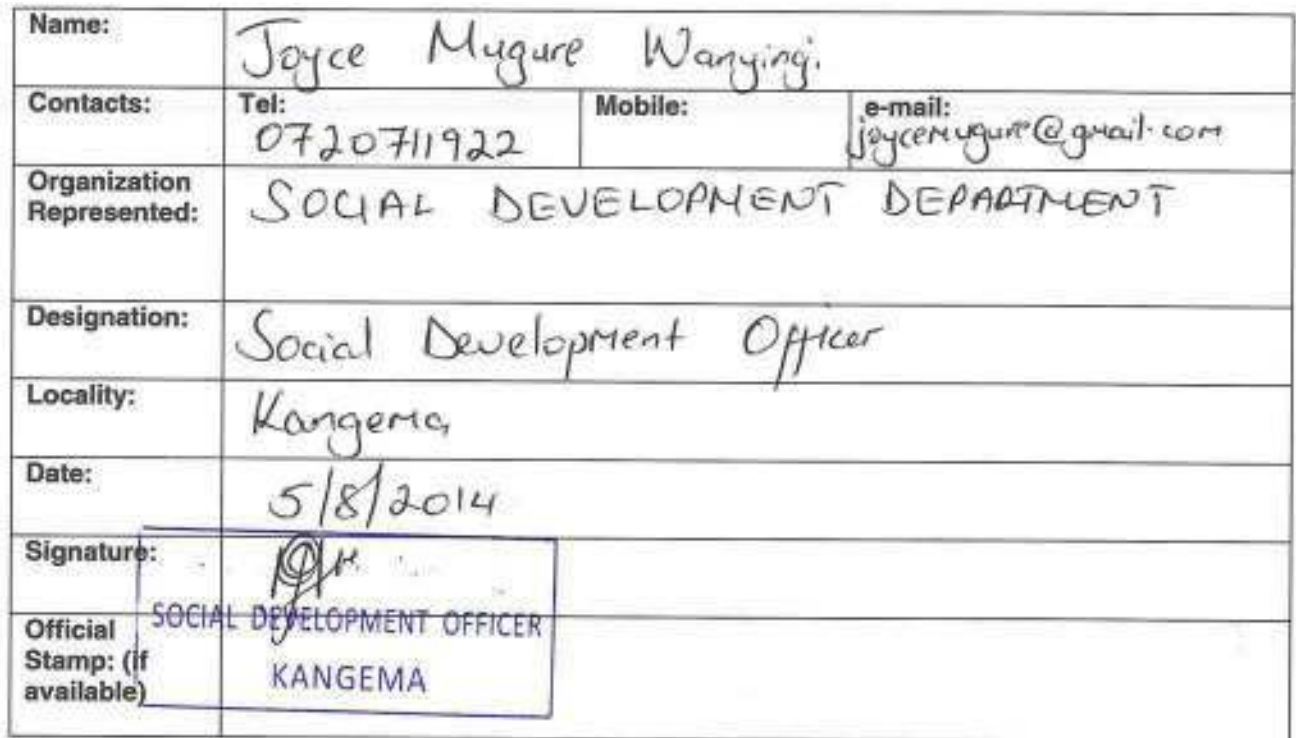 Name: Joyce Mugure Wanyingi.
Contacts: Tel: Mobile: e-mail:
0720711922 joycemugure@gmail.com
Organization Represented: SOCIAL DEVELOPMENT DEPARTMENT
Designation: Social Development Officer
Locality: Kangema
Date: 5/8/2014
Signature:
Official Stamp: (if available)
SOCIAL DEVELOPMENT OFFICER
KANGEMA